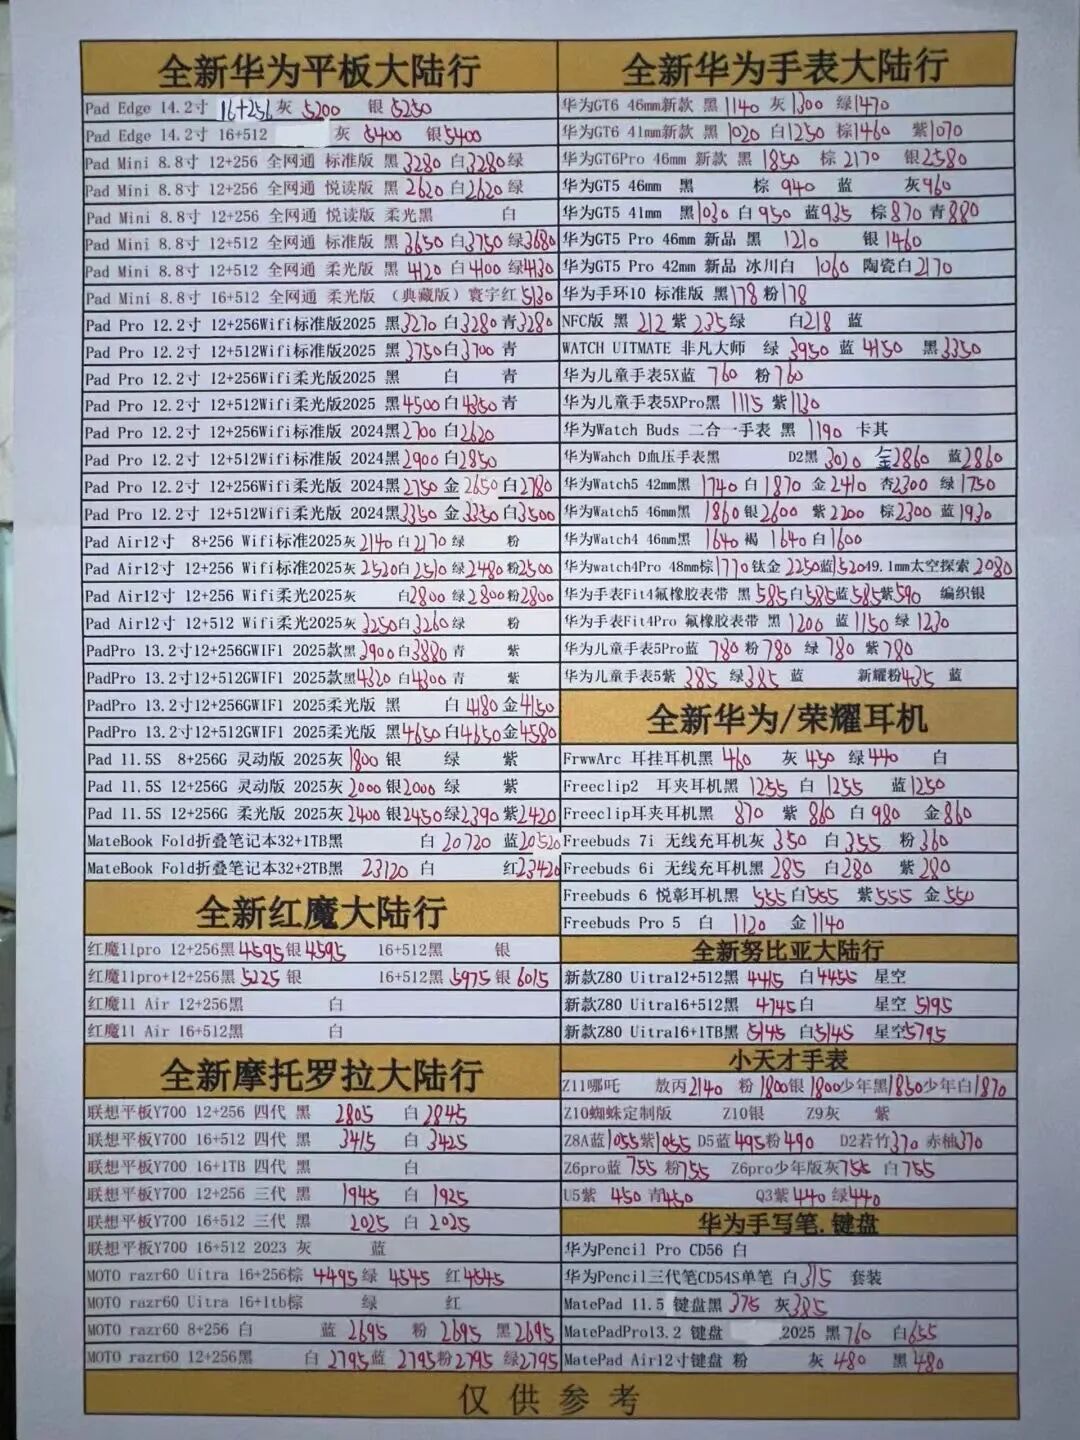 全新华为平板大陆行
Pad Edge 14.2寸 16+256 灰 5200 银 5250
Pad Edge 14.2寸 16+512 灰 5400 银5400
Pad Mini 8.8寸 12+256 全网通 标准版 黑3280 白3280绿
Pad Mini 8.8寸 12+256 全网通 悦读版 黑 2620 白2620 绿
Pad Mini 8.8寸 12+256 全网通 悦读版 柔光黑 白
Pad Mini 8.8寸 12+512 全网通 标准版 黑3650 白3750 绿3680
Pad Mini 8.8寸 12+512 全网通 柔光版 黑 4120 白4100 绿4130
Pad Mini 8.8寸 16+512 全网通 柔光版 （典藏版）寰宇红5130
Pad Pro 12.2寸 12+256Wifi标准版2025 黑3270 白3280青3280
Pad Pro 12.2寸 12+512Wifi标准版2025 黑3750白3700 青
Pad Pro 12.2寸 12+256Wifi柔光版2025 黑 白 青
Pad Pro 12.2寸 12+512Wifi柔光版2025 黑4500白4350青
Pad Pro 12.2寸 12+256Wifi标准版 2024黑2700 白2620
Pad Pro 12.2寸 12+512Wifi标准版 2024黑2900白2850
Pad Pro 12.2寸 12+256Wifi柔光版 2024黑2750 金 2650白2780
Pad Pro 12.2寸 12+512Wifi柔光版 2024黑3350 金 3350白3500
Pad Air12寸 8+256 Wifi标准2025灰 2140白2170 绿 粉
Pad Air12寸 12+256 Wifi标准2025灰 2520白2510 绿2480粉2500
Pad Air12寸 12+256 Wifi柔光2025灰 白2800 绿2800粉2800
Pad Air12寸 12+512 Wifi柔光2025灰 3250白3260绿 粉
PadPro 13.2寸12+256GWIF1 2025款黑3900白3880青 紫
PadPro 13.2寸12+512GWIF1 2025款黑4320 白4300青 紫
PadPro 13.2寸12+256GWIF1 2025柔光版 黑 白 4180 金4150
PadPro 13.2寸12+512GWIF1 2025柔光版 黑4650白4650金4580
Pad 11.5S 8+256G 灵动版 2025灰 1800 银 绿 紫
Pad 11.5S 12+256G 灵动版 2025灰 2000 银2000 绿 紫
Pad 11.5S 12+256G 柔光版 2025灰 2400 银2450绿2390紫2420
MateBook Fold折叠笔记本32+1TB黑 白 20720 蓝20520
MateBook Fold折叠笔记本32+2TB黑 23120 白 红23420
全新红魔大陆行
红魔11pro 12+256黑4595银4595 16+512黑 银
红魔11pro+12+256黑5225 银 16+512黑5975 银 6015
红魔11 Air 12+256黑 白
红魔11 Air 16+512黑 白
全新摩托罗拉大陆行
联想平板Y700 12+256 四代 黑 2805 白2845
联想平板Y700 16+512 四代 黑 3415 白3425
联想平板Y700 16+1TB 四代 黑 白
联想平板Y700 12+256 三代 黑 1945 白 1925
联想平板Y700 16+512 三代 黑 2025 白 2025
联想平板Y700 16+512 2023 灰 蓝
MOTO razr60 Uitra 16+256棕 4495绿 4545 红4545
MOTO razr60 Uitra 16+1tb棕 绿 红
MOTO razr60 8+256 白 蓝 2695 粉 2695 黑2695
MOTO razr60 12+256黑 白 2795蓝 2795粉2795 绿2795
全新华为手表大陆行
华为GT6 46mm新款 黑1140 灰1300 绿1470
华为GT6 41mm新款 黑1020 白1250 棕1460 紫1070
华为GT6Pro 46mm 新款 黑 1850 棕 2170 银2580
华为GT5 46mm 黑 棕 940 蓝 灰960
华为GT5 41mm 黑1030 白 950 蓝935 棕870 青880
华为GT5 Pro 46mm 新品 黑 1210 银 1460
华为GT5 Pro 42mm 新品 冰川白 1060 陶瓷白2170
华为手环10 标准版 黑178 粉178
NFC版 黑 212 紫 235绿 白218 蓝
WATCH UITMATE 非凡大师 绿 3950 蓝 4150 黑3350
华为儿童手表5X蓝 760 粉760
华为儿童手表5XPro黑 1115 紫1130
华为Watch Buds 二合一手表 黑 1190 卡其
华为Wahch D血压手表黑 D2黑3020 金2860 蓝2860
华为Watch5 42mm黑 1740白1870 金2410 杏2300 绿1750
华为Watch5 46mm黑 1860银2600 紫2200 棕2300 蓝1930
华为Watch4 46mm黑 1640 褐 1640白1600
华为watch4Pro 48mm棕1770钛金 2250蓝152049.1mm太空探索 2080
华为手表Fit4氟橡胶表带 黑585白585蓝585紫590 编织银
华为手表Fit4Pro 氟橡胶表带 黑 1200 蓝1150绿 1230
华为儿童手表5Pro蓝 780 粉780 绿780 紫780
华为儿童手表5紫 385 绿385 蓝 新耀粉435 蓝
全新华为/荣耀耳机
FrwwArc 耳挂耳机黑 460 灰450 绿440 白
Freeclip2 耳夹耳机黑 1255 白 1255 蓝1250
Freeclip耳夹耳机黑 870 紫860 白980 金860
Freebuds 7i 无线充耳机灰 350 白355 粉360
Freebuds 6i 无线充耳机黑 285 白280 紫280
Freebuds 6 悦彰耳机黑 555白555 紫555 金550
Freebuds Pro 5 白 1120 金1140
全新努比亚大陆行
新款Z80 Uitra12+512黑 4415 白4455 星空
新款Z80 Uitra16+512黑 4745白 星空 5195
新款Z80 Uitra16+1TB黑 5145 白5145 星空5795
小天才手表
Z11哪吒 敖丙2140 粉 1800银 1800少年黑1850少年白1870
Z10蜘蛛定制版 Z10银 Z9灰 紫
Z8A蓝1055紫1055 D5蓝495粉490 D2若竹370 赤柚370
Z6pro蓝 755 粉755 Z6pro少年版灰755 白755
U5紫 450 青450 Q3紫440 绿440
华为手写笔.键盘
华为Pencil Pro CD56 白
华为Pencil三代笔CD54S单笔 白315 套装
MatePad 11.5 键盘黑 375 灰385
MatePadPro13.2 键盘 2025 黑760 白655
MatePad Air12寸键盘 粉 灰 480 黑480
仅供参考